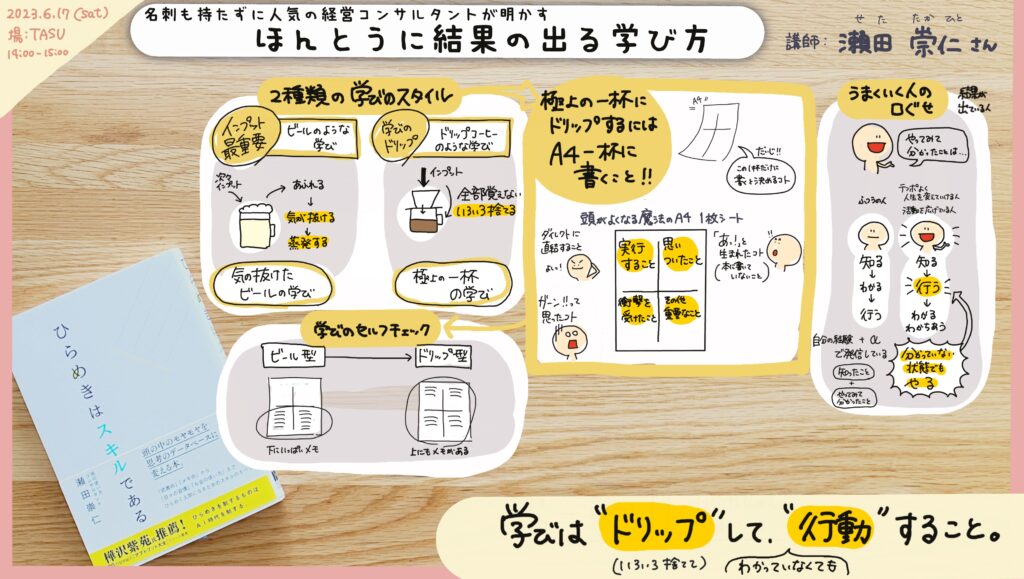 2023.6.17(sat)
場:TASU
14:00-15:00
名刺も持たずに人気の経営コンサルタントが明かす
ほんとうに結果の出る学び方
せた たかひと
講師: 瀬田 崇仁 さん
2種類の学びのスタイル
インプット
最重要
ビールのような
学び
次々
インプット
あふれる
気が抜ける
蒸発する
気の抜けた
ビールの学び
学びの
ドリップ
ドリップコーヒー
のような学び
インプット
全部覚えない
いろいろ捨てる
極上の一杯
の学び
極上の一杯に
ドリップするには
A4一杯に
書くこと!!
A4
だーじ!!
この1杯だけに
書くと決めるコト
頭がよくなる魔法のA4 1枚シート
ダイレクトに
直結すること
よい!
ガーン!!って
思ったコト
実行
すること
思い
ついたこと
衝撃を
受けたこと
その他
重要なこと
「あっ!」と
生まれたコト
(本に書いて
いないこと)
学びのセルフチェック
ビール型
ドリップ型
下にいっぱいメモ
上にもメモがある
うまくいく人の
口ぐせ
結果が
出ている人
やってみて
分かったことは…
ふつうの人
知る
わかる
行う
テンポよく
人生を変えていける人
活動を広げている人
知る
行う
わかる
わかちあう
自分の経験+α
で発信している
知ったこと
+
やってみて
分かったこと
分かっていない
状態でも
やる
ひらめきはスキルである
頭の中のモヤモヤを
思考のデータベースに
変える本
瀬田崇仁
樺沢紫苑氏推薦!
ひらめきを制するものは
AI時代を制する
学びは"ドリップ"して、"行動"すること。
(いろいろ捨てて)
わかっていなくても